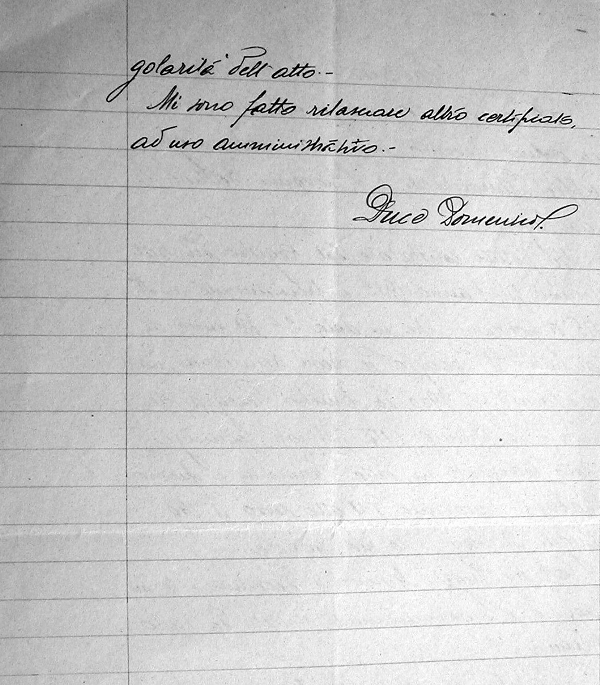 golarità dell'atto.-
Mi sono fatto rilasciare altro certificato,
ad uso amministrativo.-
Duco Domenico